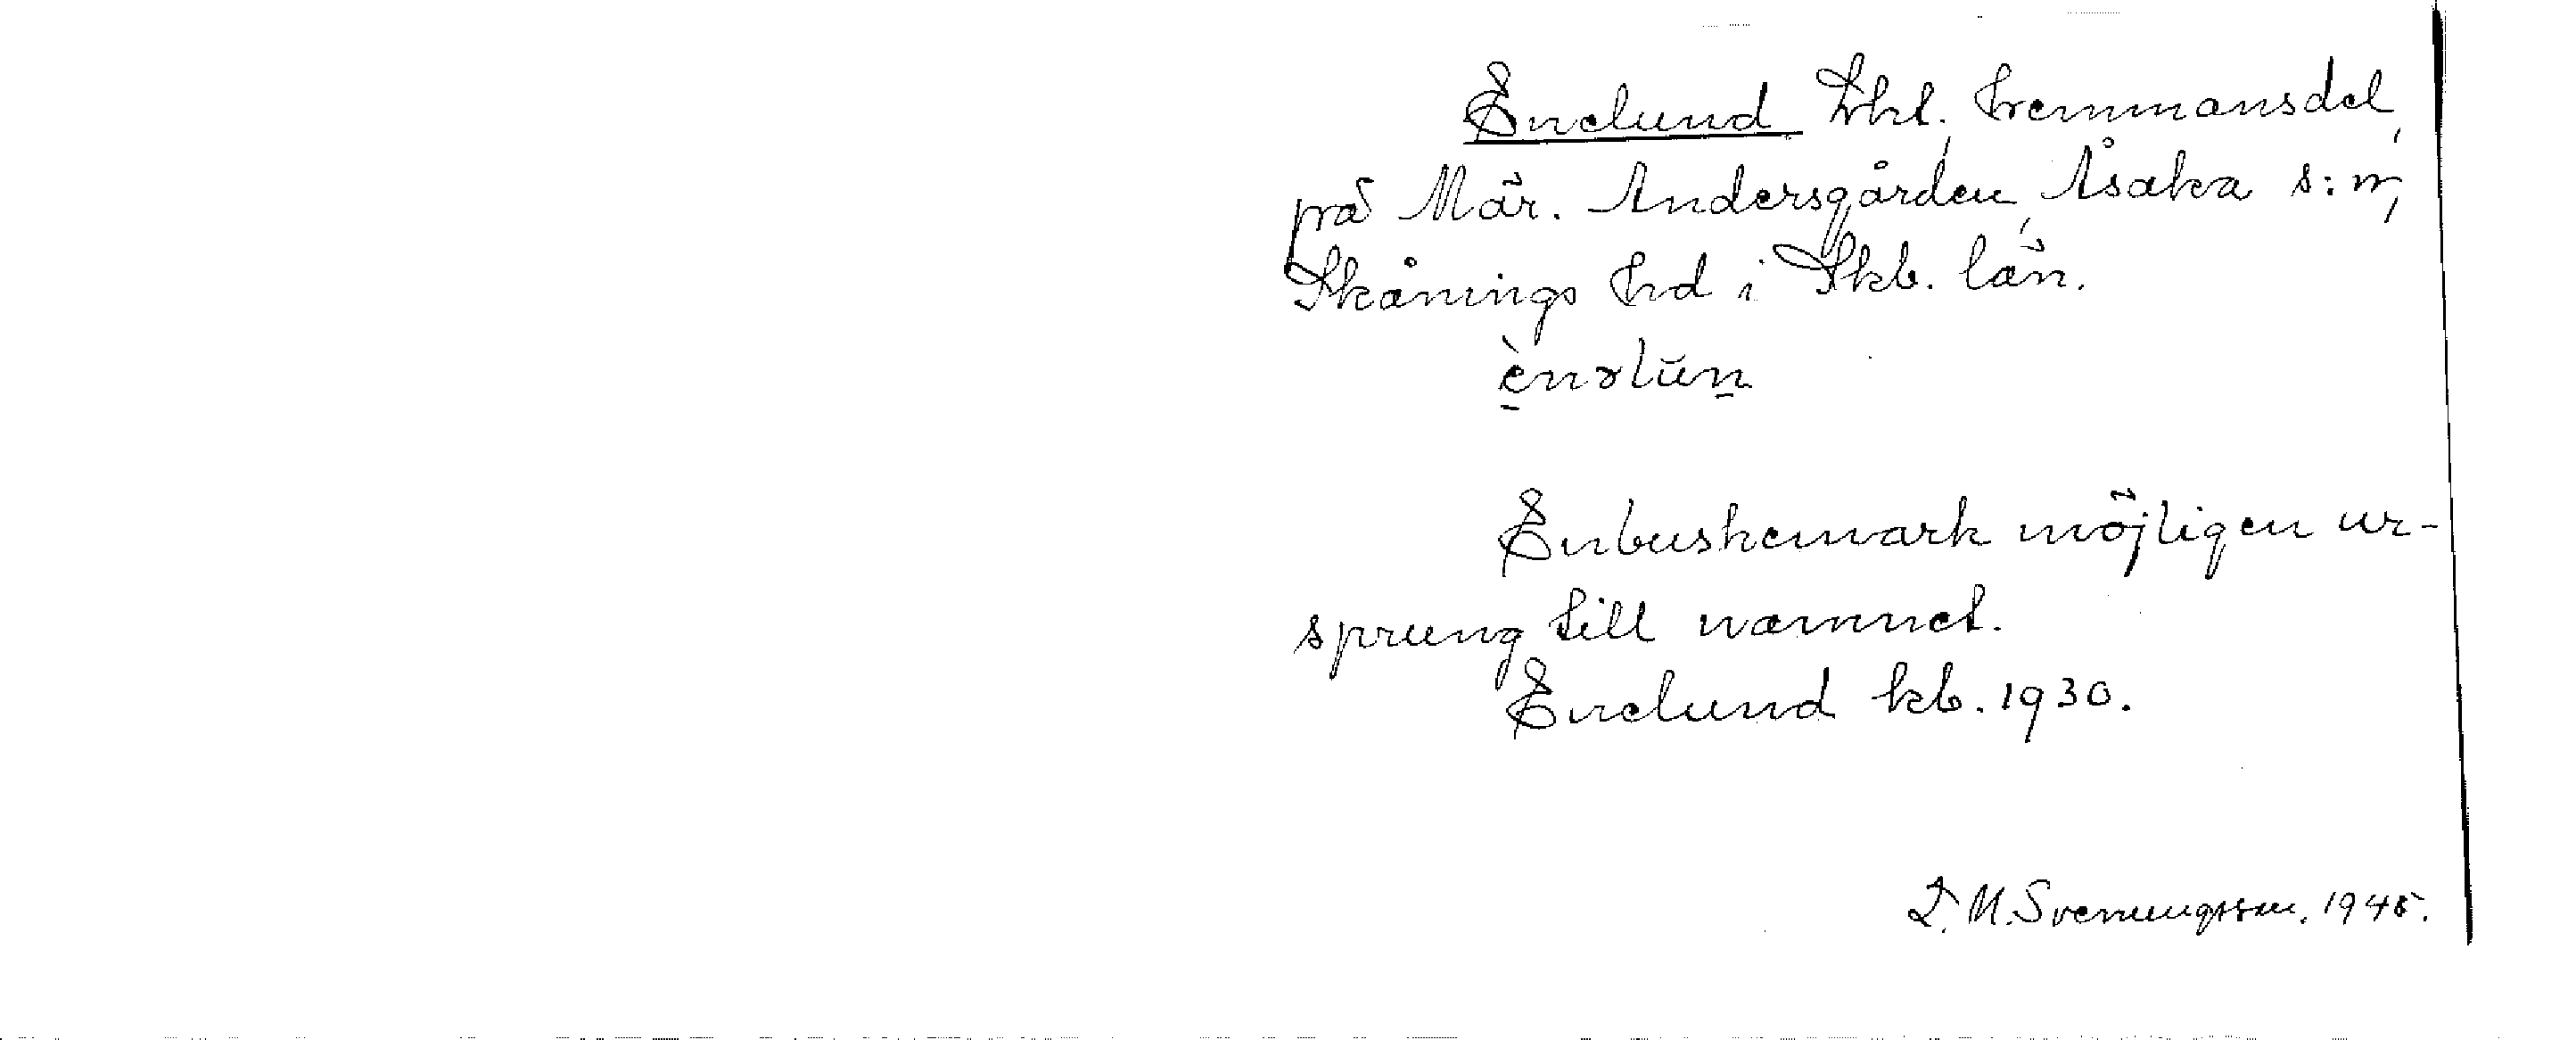 Enelund, Lht. hemmansdel,
på Mär. Andersgården, Åsaka s:n,
Skånings hd i Skb. län.
ènəlūn
Enbuskemark möjligen ur-
sprung till namnet.
Enelund kb. 1930.
L. M. Svenungsson. 1945.